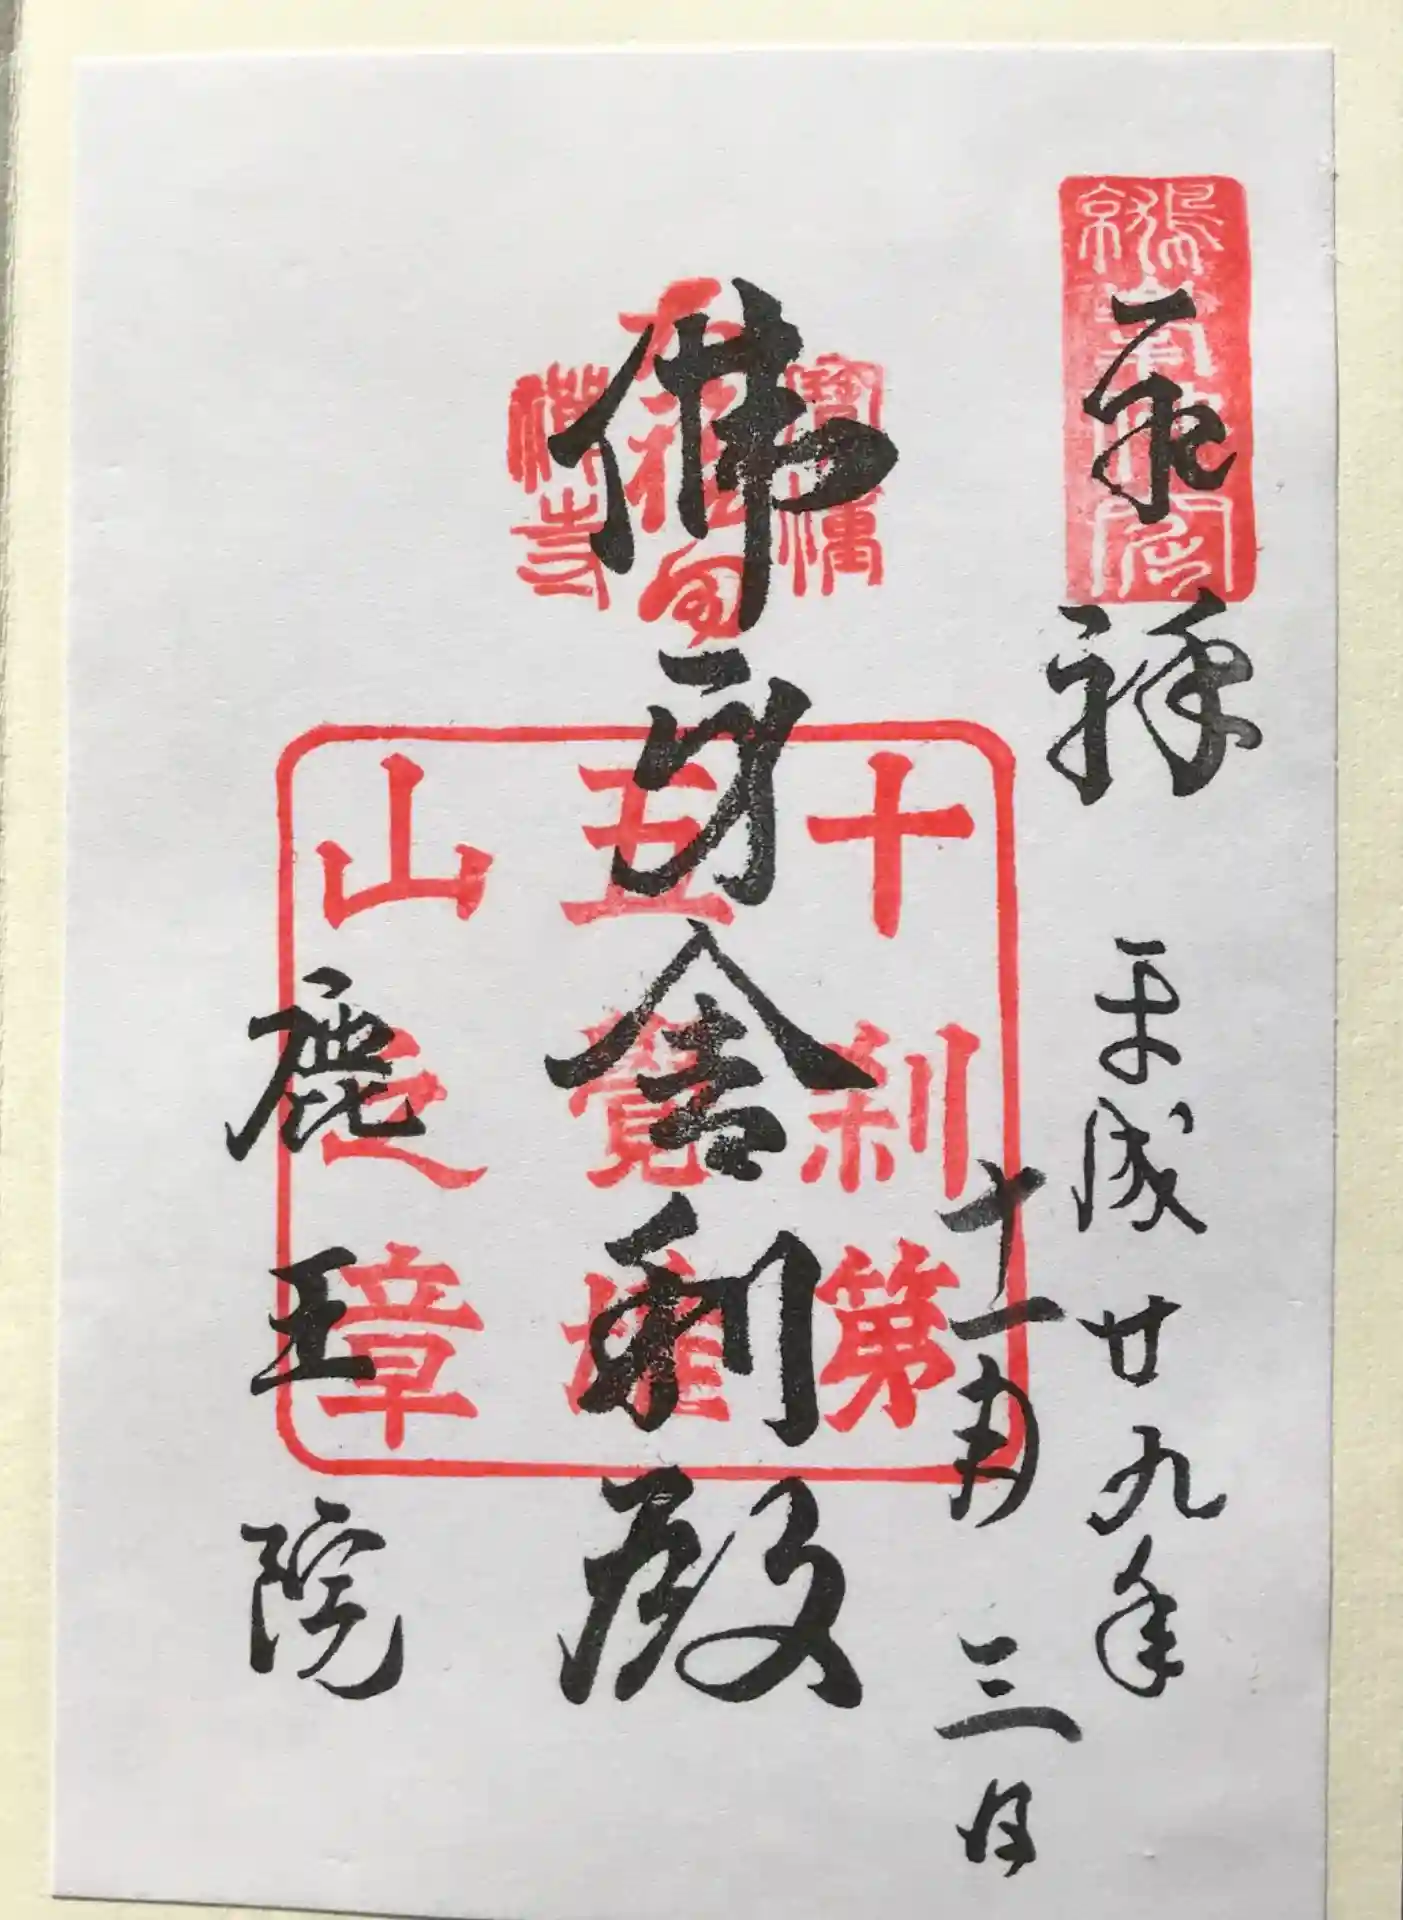 平成廿九年
十一月三日
佛牙舎利殿
鹿王院
寶幢
大福田
禪寺
十刹第
五覺雄
山之章